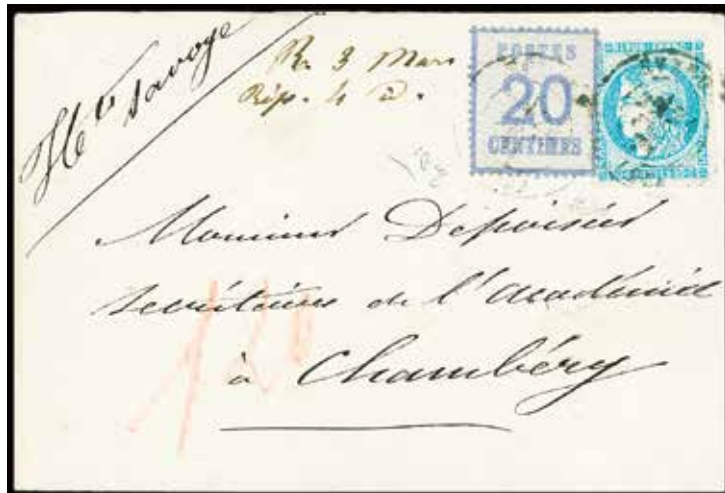 Hte Savoye
Rx 3 Mars
Rép. 4 d.
POSTES
20
CENTIMES
Monsieur Depoisier
Secrétaire de l'Académie
à Chambéry